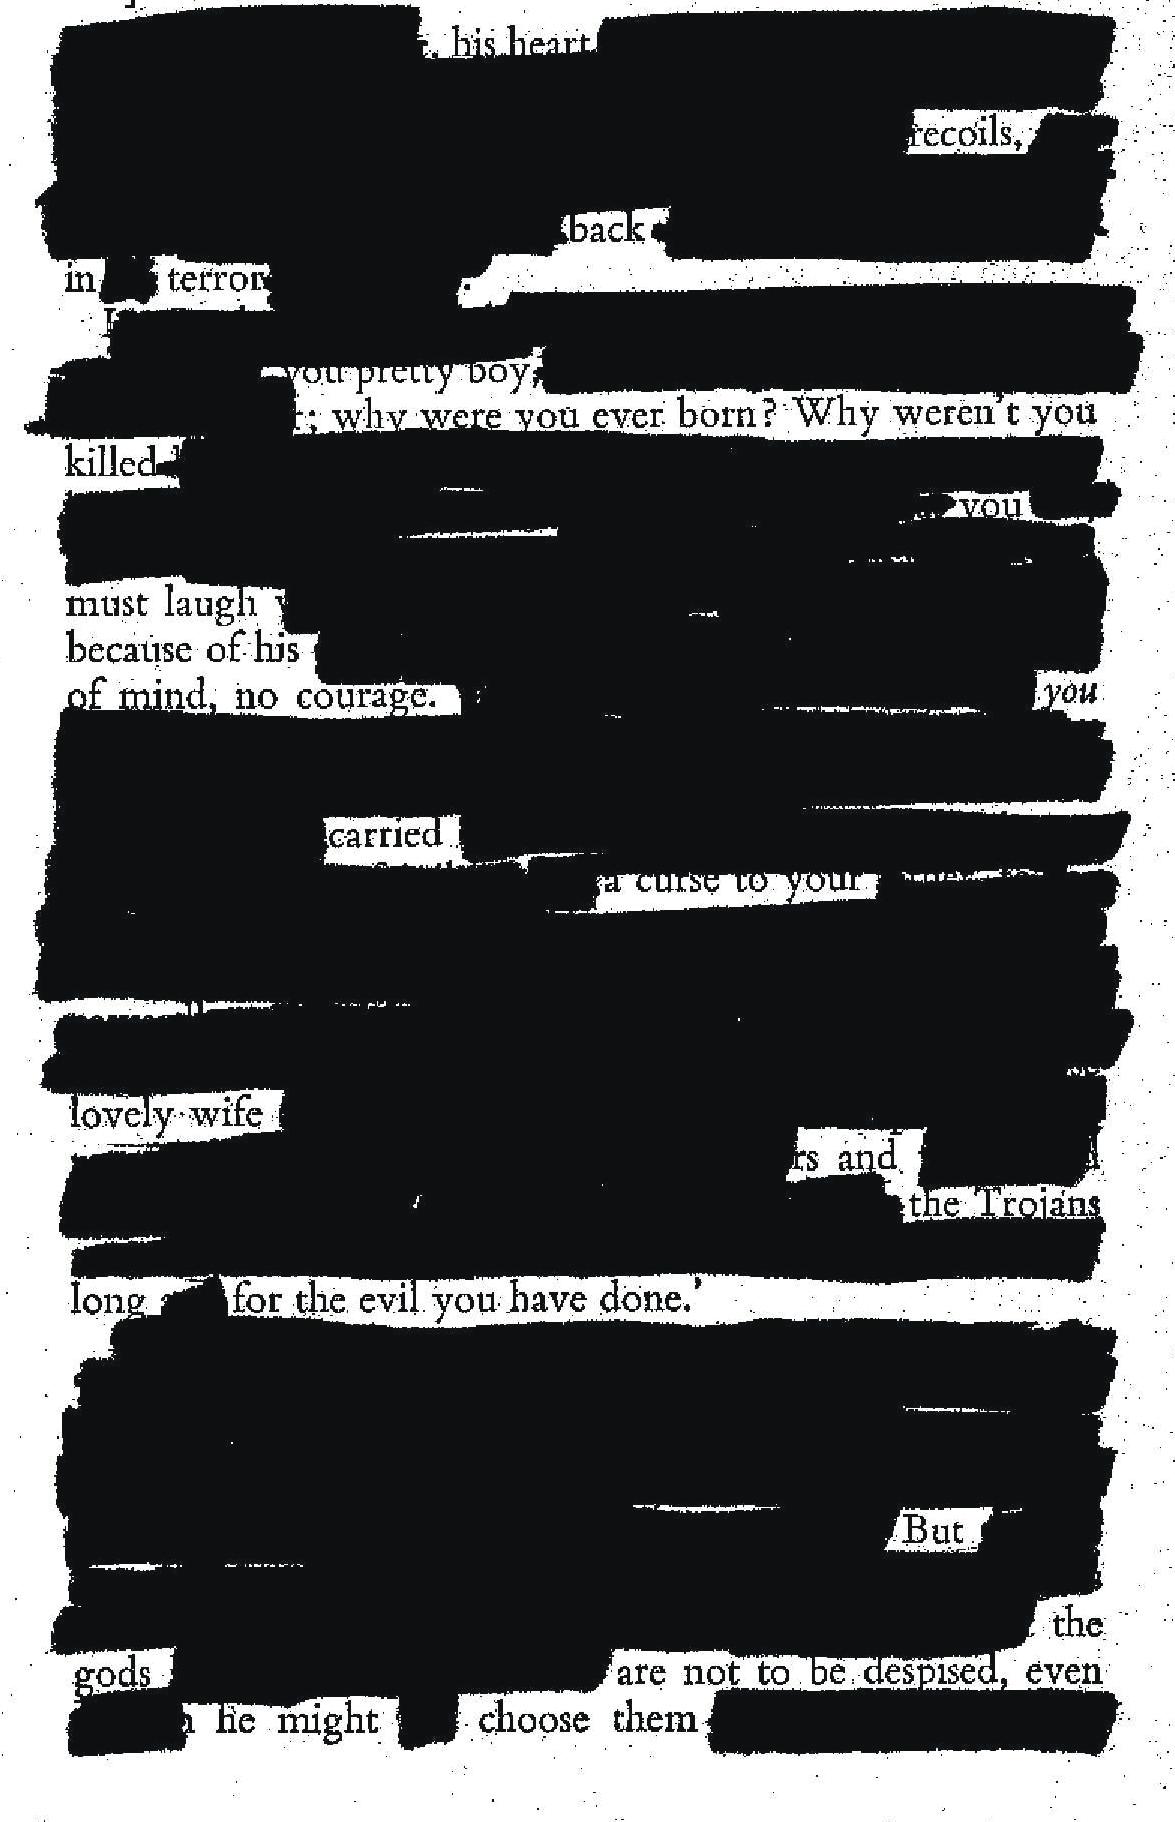 his heart
recoils,
back
in terror
you pretty boy,
; why were you ever born? Why weren't you
killed
you
must laugh
because of his
of mind, no courage. you
carried
a curse to your
lovely wife
and
the Trojans
long for the evil you have done.'
But
the
gods are not to be despised, even
he might choose them